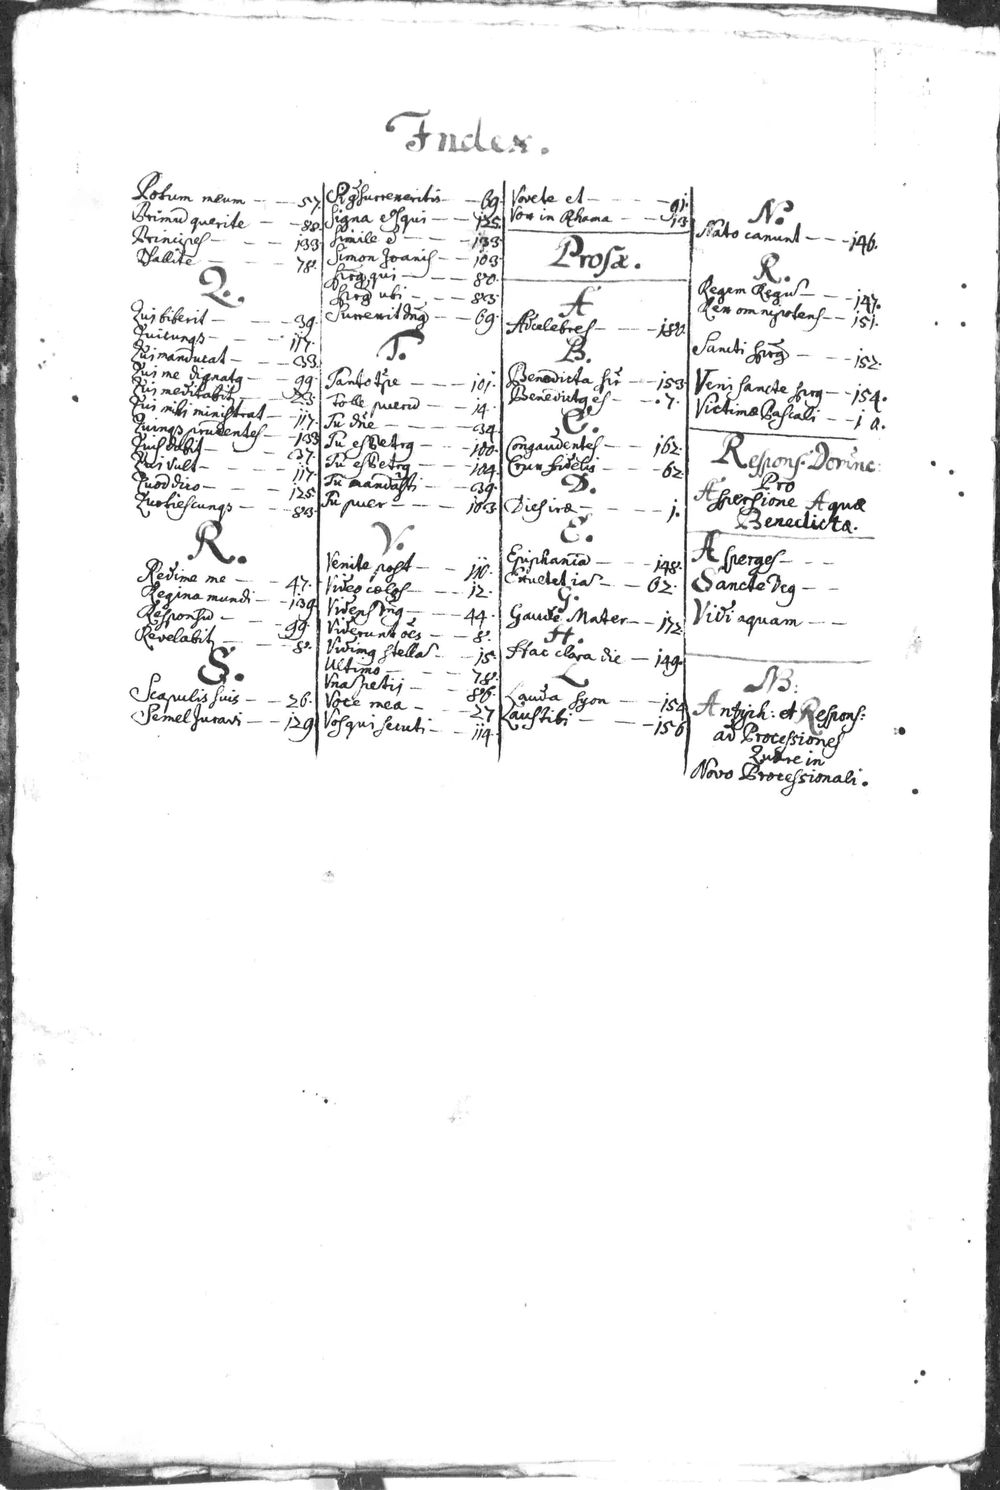 Index.
Potum meum — 57.
Primū querite — 88.
Principes — 133
Psallite — 78.
Q.
Qui biberit — 39.
Quicunqs — 117.
Qui manducat — 33
Qui me dignatq — 99.
Qui meditabit — 23
Qui mihi ministrat — 117.
Quinqs prudentes — 133
Quis dabit — 37.
Qui vult — 117
Quod dico — 125
Quotiescunqs — 83.
R.
Redime me — 47.
Regina mundi — 139.
Responsū — 99.
Revelabit — 8.
S.
Scapulis suis — 26.
Semel Juravi — 129
Si consurrexeritis — 69.
Signa eos qui — 125.
Simile ē — 133
Simon Joanis — 103
Spūs qui — 80.
Spūs ubi — 83.
Surrexit Dnū — 69.
T.
Tanto tpē — 101.
Tolle puerū — 14.
Tu dñe — 34.
Tu es Petrq — 100.
Tu es Petrq — 104.
Tu mandasti — 39.
Tu puer — 103.
V.
Venite post — 110.
Video cœlos — 12.
Videns Dnū — 44.
Viderunt oēs — 8.
Vidimq stellā — 15.
Ultimo — 78.
Una petij — 86.
Voce mea — 27
Vos qui secuti — 114.
Vovete et — 91.
Vox in Rhama — 13
Prosæ.
A
Ad celebres — 180.
B.
Benedicta sit — 153
Benedictq es — 7.
C.
Congaudentes — 162.
Crux fidelis — 62
D.
Dies iræ — 1.
E.
Epiphaniā — 148.
— 62.
G.
Gaude Mater — 172
H.
Hac clara die — 149.
L
Lauda Syon — 154
Laus Tibi — 156
N.
Nato canunt — 146.
R.
Regem Regū — 147.
Rex omnipotens — 151.
Sancti Spūs — 152.
Veni Sancte Spūs — 154.
Victimæ Pascali —
Respons: Dominc:
Pro
Aspersione Aquæ
Benedictæ.
Asperges —
Sancte Deq —
Vidi aquam —
NB:
Antiph: et Respons:
ad Processiones
Quære in
Novo Processionali.